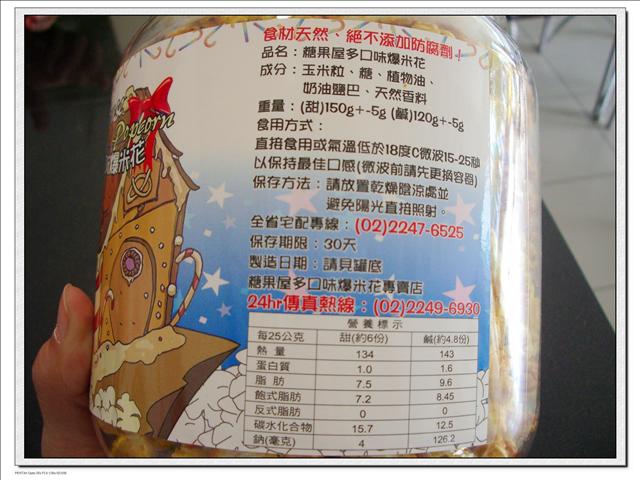 食材天然、絕不添加防腐劑！
品名：糖果屋多口味爆米花
成分：玉米粒、糖、植物油、
奶油鹽巴、天然香料
重量：(甜)150g+-5g (鹹)120g+-5g
食用方式：
直接食用或氣溫低於18度C微波15-25秒
以保持最佳口感(微波前請先更換容器)
保存方法：請放置乾燥陰涼處並
避免陽光直接照射。
全省宅配專線：(02)2247-6525
保存期限：30天
製造日期：請見罐底
糖果屋多口味爆米花專賣店
24hr傳真熱線：(02)2249-6930
營養標示
每25公克 甜(約6份) 鹹(約4.8份)
熱量 134 143
蛋白質 1.0 1.6
脂肪 7.5 9.6
飽式脂肪 7.2 8.45
反式脂肪 0 0
碳水化合物 15.7 12.5
鈉(毫克) 4 126.2
Popcorn
爆米花